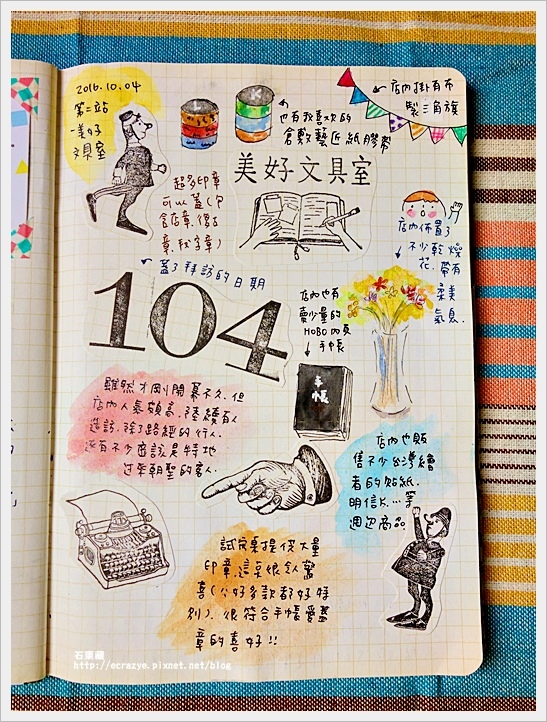 2016.10.04
第二站
美好
文具室
也有我喜欢的
倉敷藝匠紙膠帶
店內掛有布
製三角旗
美好文具室
超多印章
可以蓋(包
含店章、復古
章、數字章)
蓋了拜訪的日期
104
店內佈置了
不少乾燥
花、帶有
柔美
氣息.
店內也有
賣少量的
HOBO內頁
手帳
手帳
雖然才剛開幕不久、但
店內人氣頗高、陸續有人
造訪、除了路經的行人、
還有不少應該是特地
過來朝聖的客人.
店內也販
售不少台灣繪
者的貼紙、
明信片…等
週邊商品
試寫桌提供大量
印章、這真很令人驚
喜(公好多款都好特
別)、很符合手帳愛蓋
章的喜好!!
石票藏
http://ecrazye.pixnet.net/blog